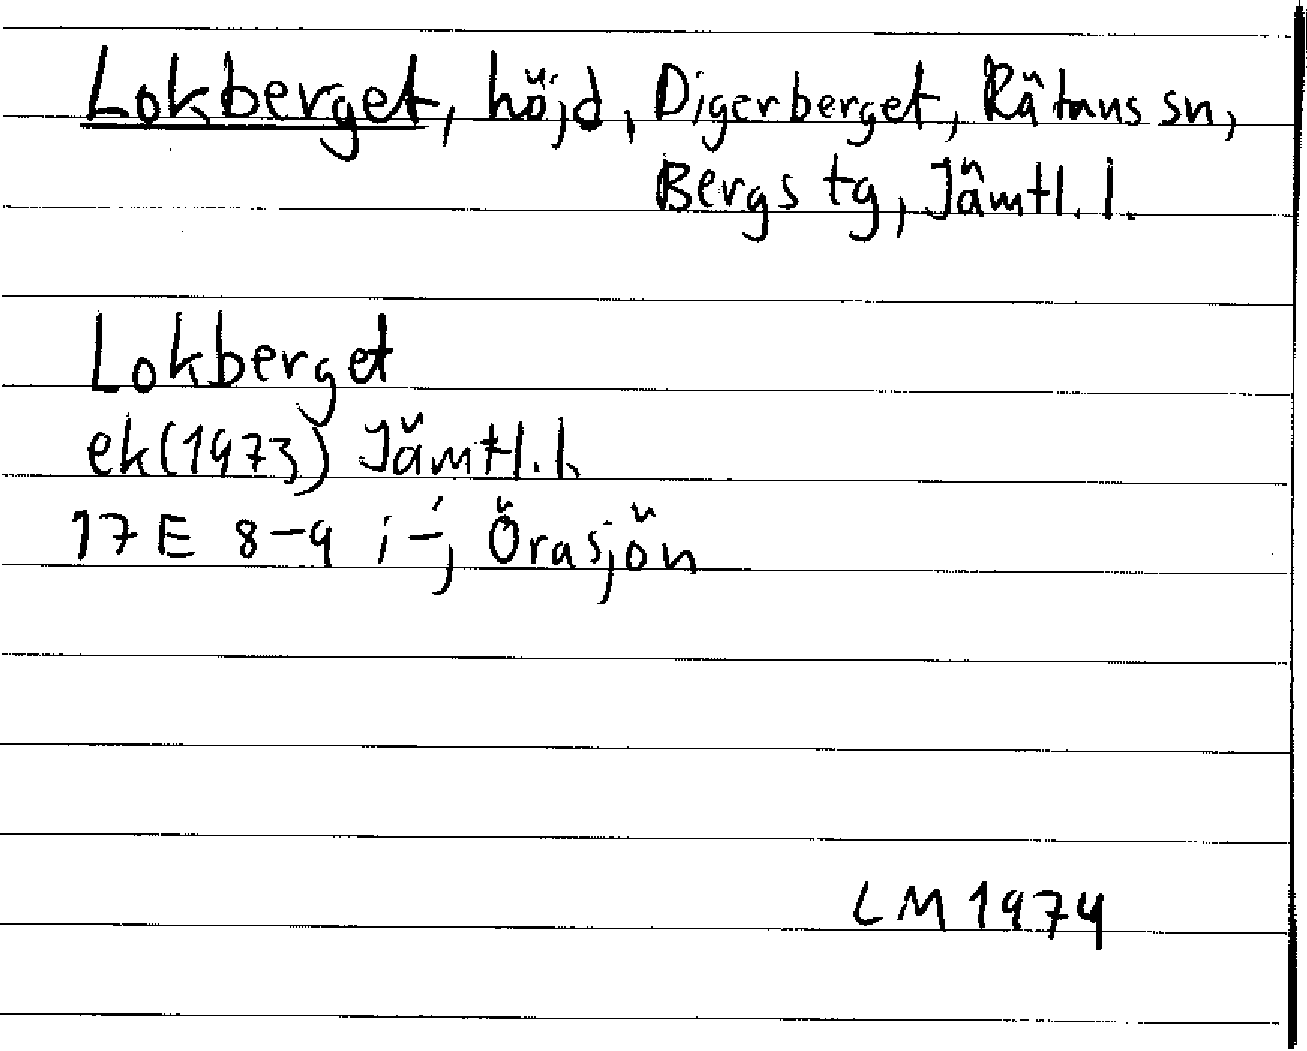 Lokberget, höjd, Digerberget, Rätans sn,
Bergs tg, Jämtl. l.
Lokberget
ek(1973) Jämtl. l.
17E 8-9 i-j Örasjön
LM 1974